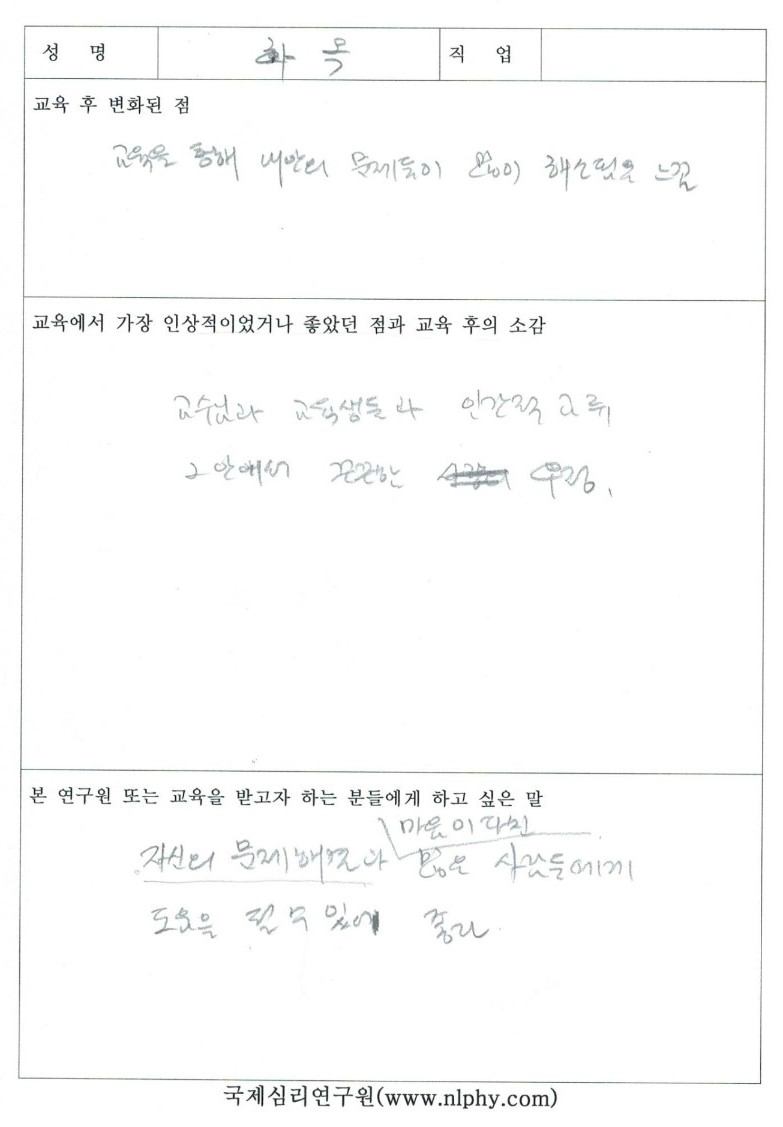 성 명 화 목 직 업
교육 후 변화된 점
교육을 통해 내안의 문제들이 많이 해소됨을 느낌
교육에서 가장 인상적이었거나 좋았던 점과 교육 후의 소감
교수님과 교육생들과 인간적 교류
그 안에서 끈끈한 우정.
본 연구원 또는 교육을 받고자 하는 분들에게 하고 싶은 말
마음이 다친
자신의 문제해결과 많은 사람들에게
도움을 될 수 있에 좋다
국제심리연구원(www.nlphy.com)